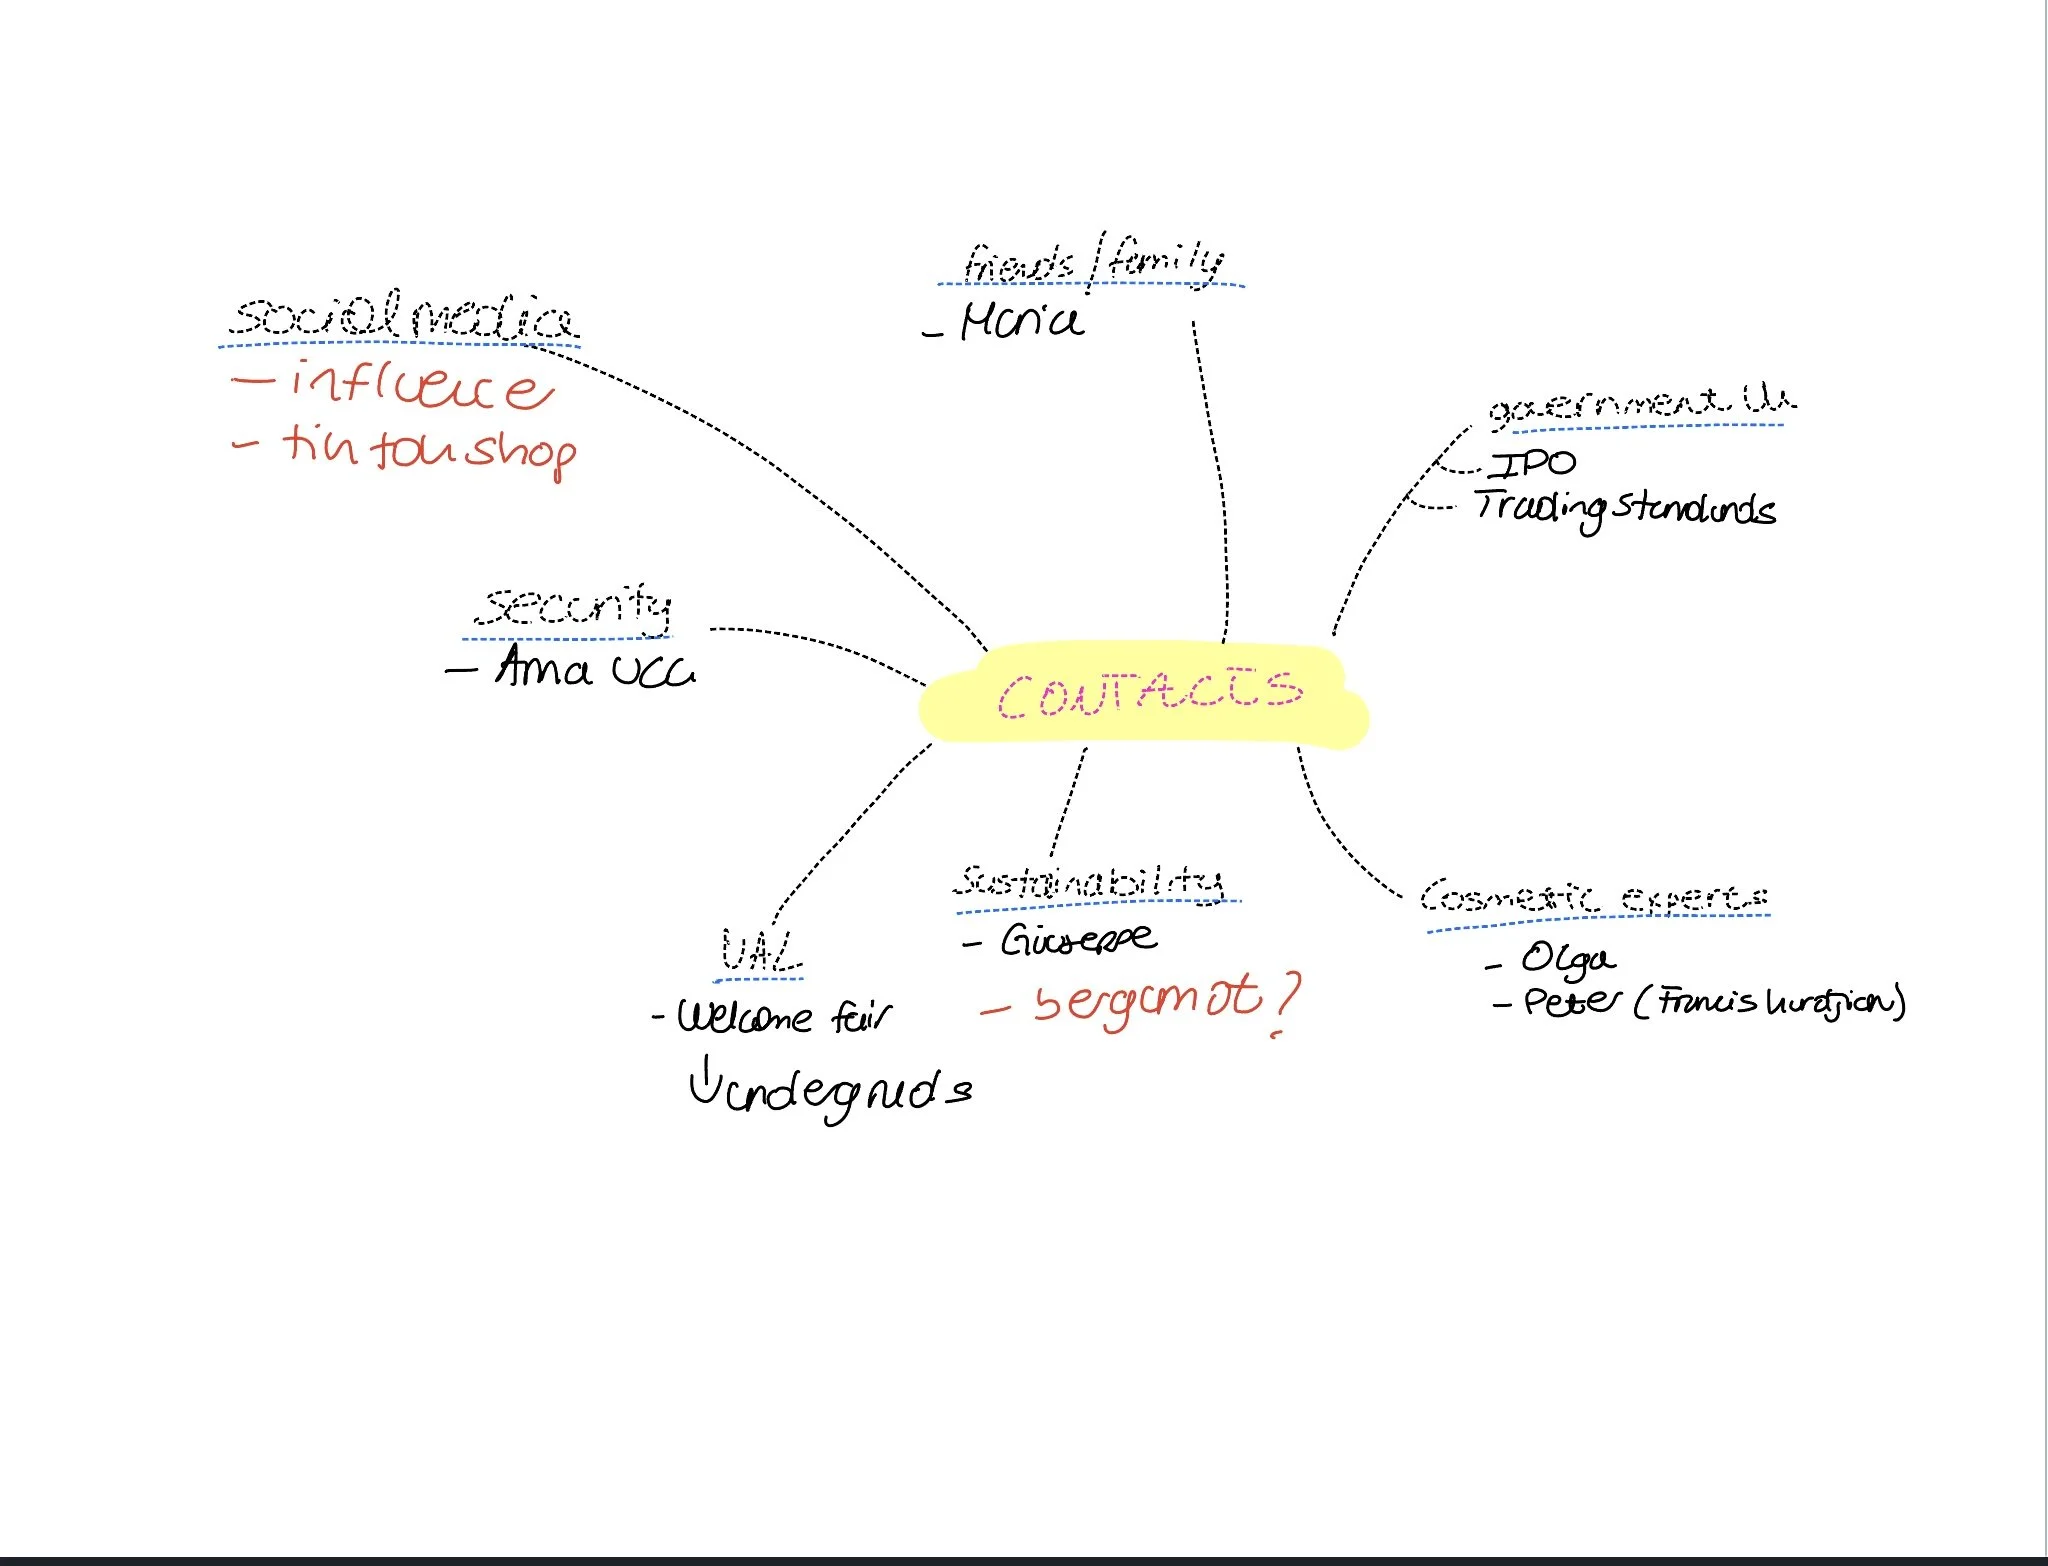 friends/family
- Maria
social media
- influence
- tik tok shop
government Uk
IPO
Trading standards
security
- Ama UCA
CONTACTS
Sustainability
- Giuseppe
- bergamot?
Cosmetic experts
- Olga
- Peter (Francis kurdjian)
UAL
- Welcome fair
↓ undergrads